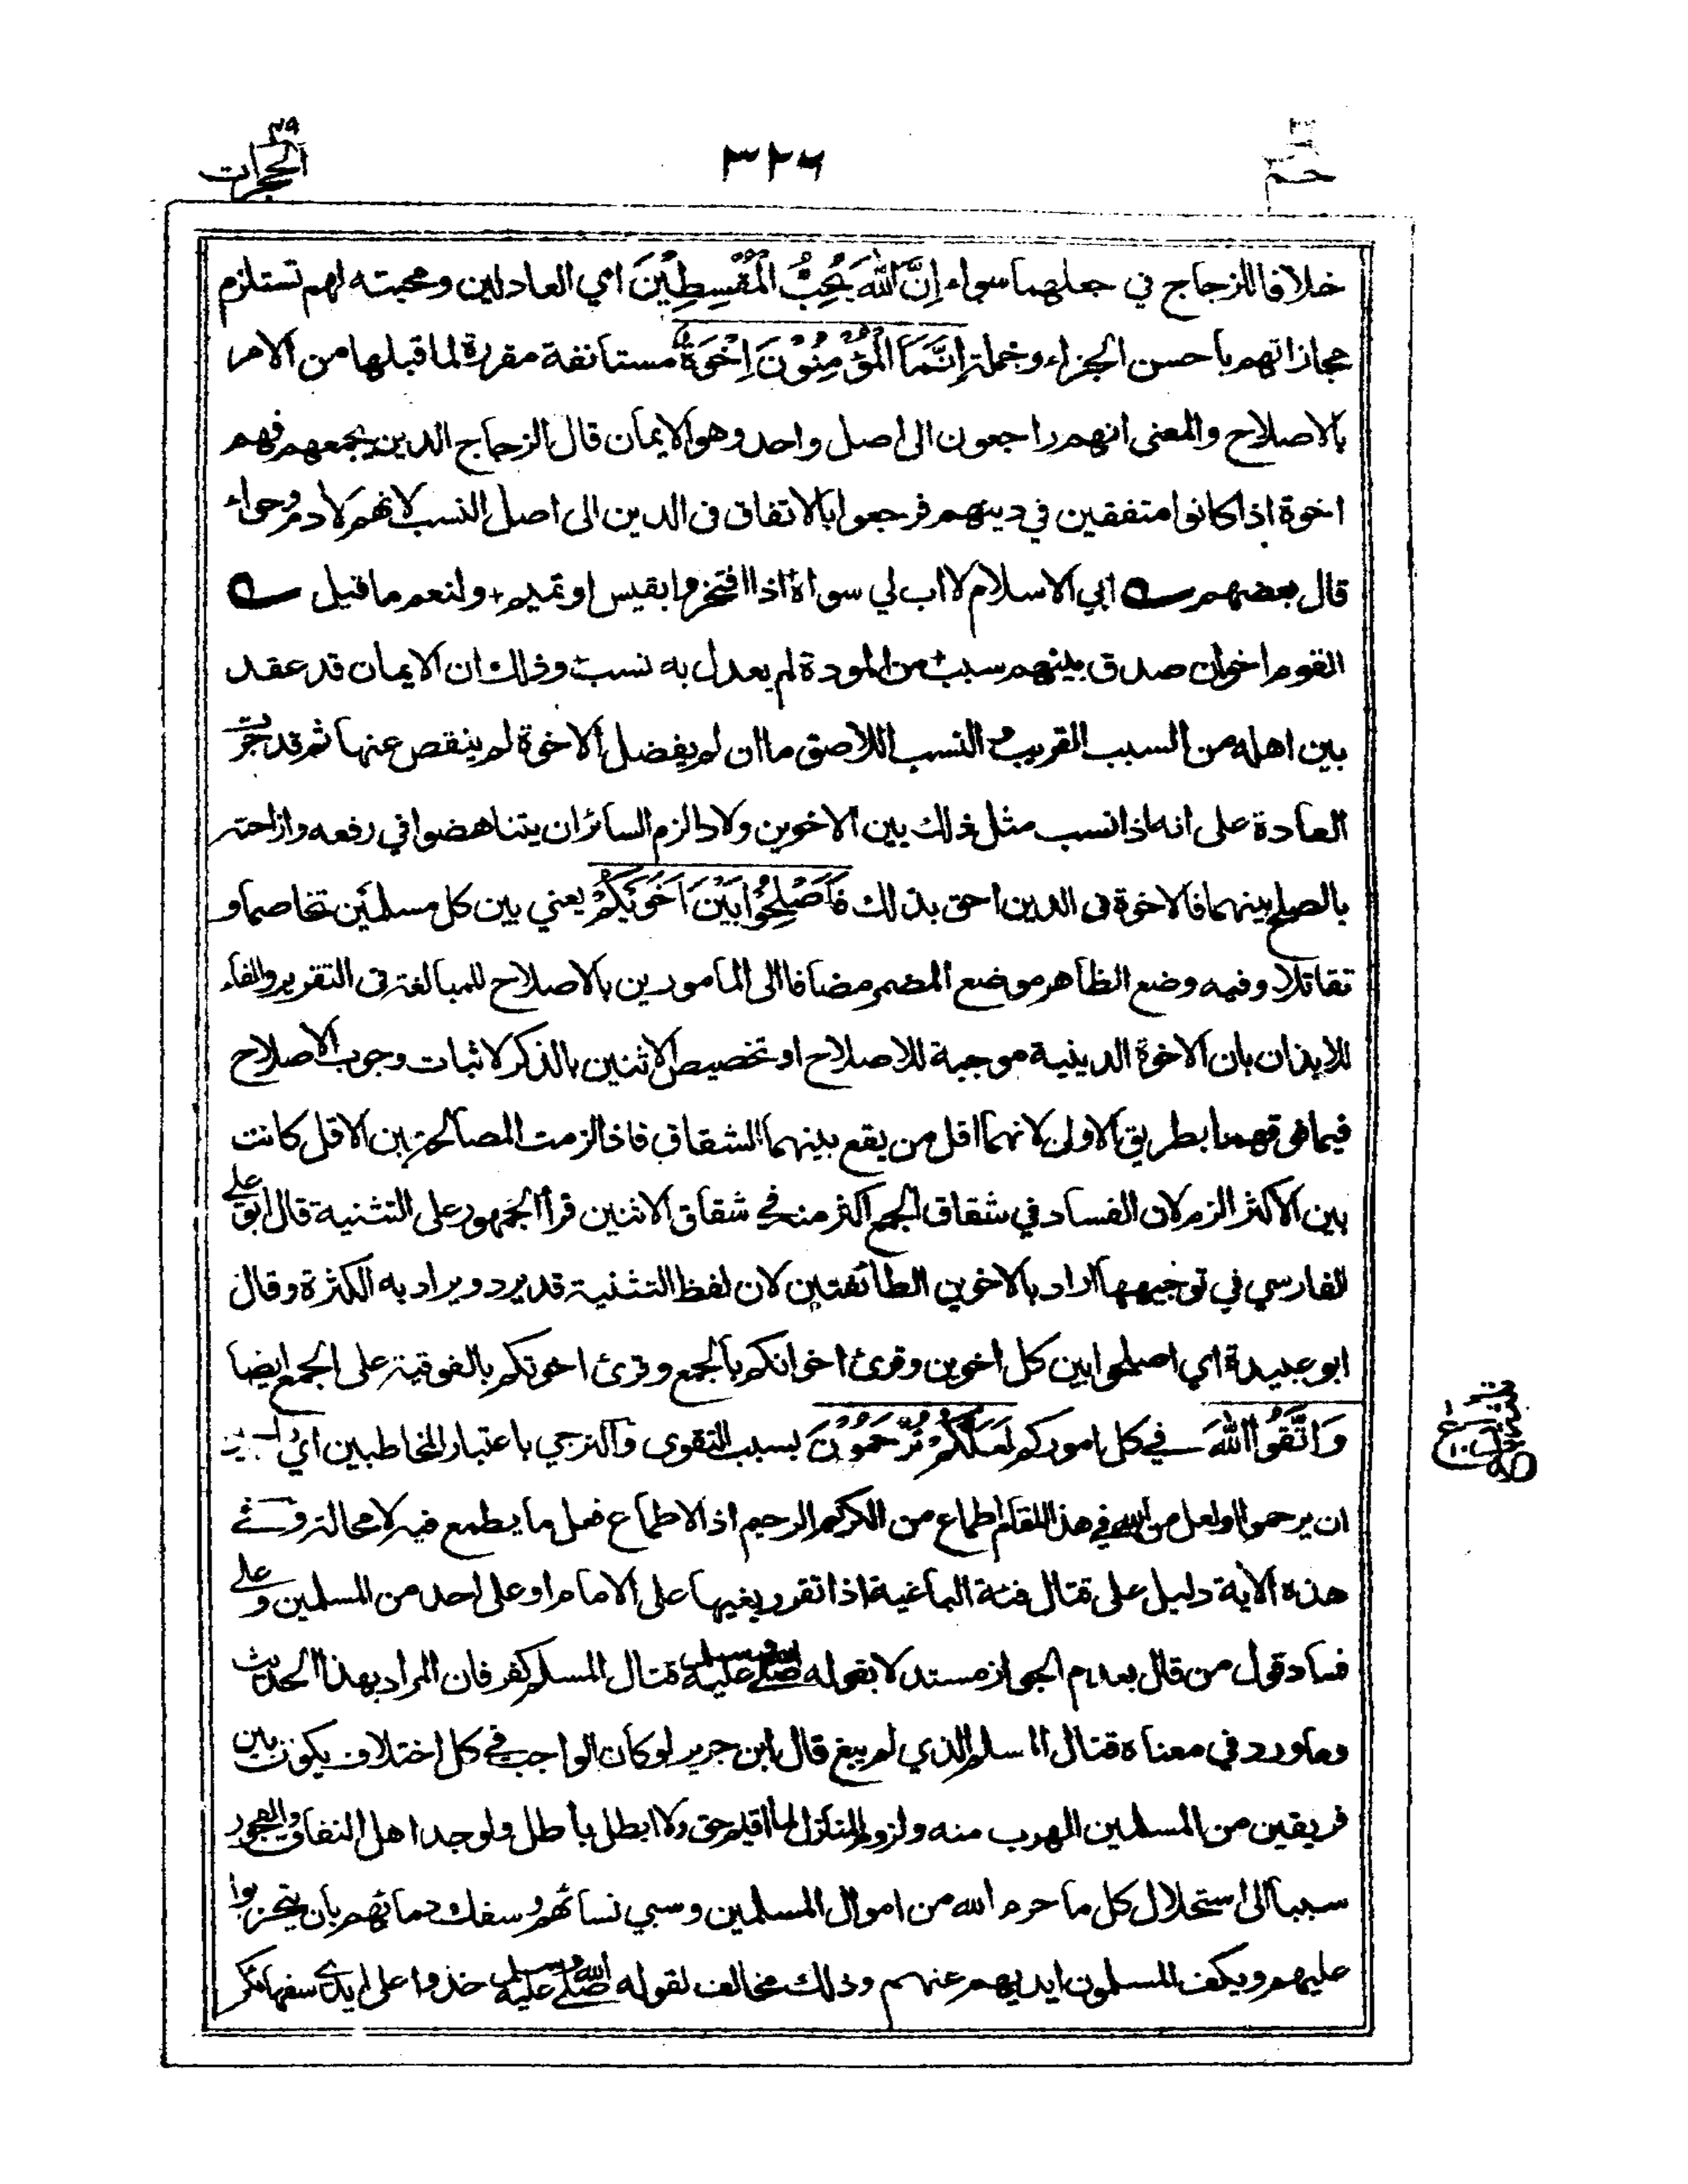 حم
٣٢٦
الحجرات ٤٩
خلافا للزجاج في جعلهما سواء إِنَّ اللهَ يُحِبُّ الْمُقْسِطِيْنَ اي العادلين ومحبته لهم تستلزم
مجازاتهم باحسن الجزاء وجملة إِنَّمَا الْمُؤْمِنُوْنَ اِخْوَةٌ مستانفة مقررة لما قبلها من الامر
بالاصلاح والمعنى انهم راجعون الى اصل واحد وهو الايمان قال الزجاج الدين يجمعهم فهم
اخوة اذا كانوا متفقين في دينهم فرجعوا بالاتفاق في الدين الى اصل النسب لانهم لادم وحواء
قال بعضهم ابي الاسلام لا اب لي سواه اذا افتخروا بقيس او تميم + ولنعم ما قيل
القوم اخوان صدق بينهم سبب + من المودة لم يعدل به نسب وذلك ان الايمان قد عقد
بين اهله من السبب القريب والنسب اللاصق ما ان لم يفضل الاخوة لم ينقص عنها ثم قد جرت
العادة على انه اذا نسب مثل ذلك بين الاخوين ولادا لزم السائر ان يتناهضوا في رفعه وازاحته
بالصلح بينهما فالاخوة في الدين احق بذلك فَاَصْلِحُوْا بَيْنَ اَخَوَيْكُمْ يعني بين كل مسلمَين تخاصما و
تقاتلا وفيه وضع الظاهر موضع المضمر مضافا الى المامورين بالاصلاح للمبالغة في التقرير والفاء
للايذان بان الاخوة الدينية موجبة للاصلاح او تخصيص الاثنين بالذكر لاثبات وجوب الاصلاح
فيما فوقهما بطريق الاولى لانهما اقل من يقع بينهما الشقاق فاذا لزمت المصالحة بين الاقل كانت
بين الاكثر الزم لان الفساد في شقاق الجمع اكثر منه في شقاق الاثنين قرأ الجمهور على التثنية قال ابو علي
الفارسي في توجيهها اراد بالاخوين الطائفتين لان لفظ التثنية قد يرد ويراد به الكثرة وقال
ابو عبيدة اي اصلحوا بين كل اخوين وقرئ اخوانكم بالجمع وقرئ اخوتكم بالفوقية على الجمع ايضا
وَاتَّقُوا اللهَ في كل اموركم لَعَلَّكُمْ تُرْحَمُوْنَ بسبب التقوى والترجي باعتبار المخاطبين اي
ان يرحموا ولعل من الله في هذا المقام اطماع من الكريم الرحيم اذ الاطماع فعل ما يطمع فيه لا محالة وفي
هذه الاية دليل على قتال فئة الباغية اذا تقرر بغيها على الامام او على احد من المسلمين وعلى
فساد قول من قال بعدم الجواز مستدلا بقوله صلى الله عليه وسلم قتال المسلم كفر فان المراد بهذا الحديث
وما ورد في معناه قتال المسلم الذي لم يبغ قال ابن جرير لو كان الواجب في كل اختلاف يكون بين
فريقين من المسلمين الهرب منه ولزوم المنازل لما اقيم حق ولا ابطل باطل ولوجد اهل النفاق والفجور
سببا الى استحلال كل ما حرم الله من اموال المسلمين وسبي نسائهم وسفك دمائهم بان يتحزبوا
عليهم ويكف المسلمون ايديهم عنهم وذلك مخالف لقوله صلى الله عليه وسلم خذوا على ايدي سفهائكم